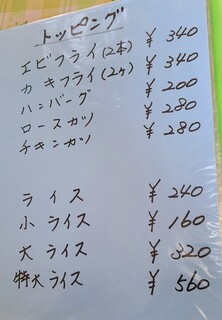 トッピング
エビフライ(2本) ¥340
カキフライ(2ヶ) ¥340
ハンバーグ ¥200
ロースカツ ¥280
チキンカツ ¥280
ライス ¥240
小ライス ¥160
大ライス ¥320
特大ライス ¥560